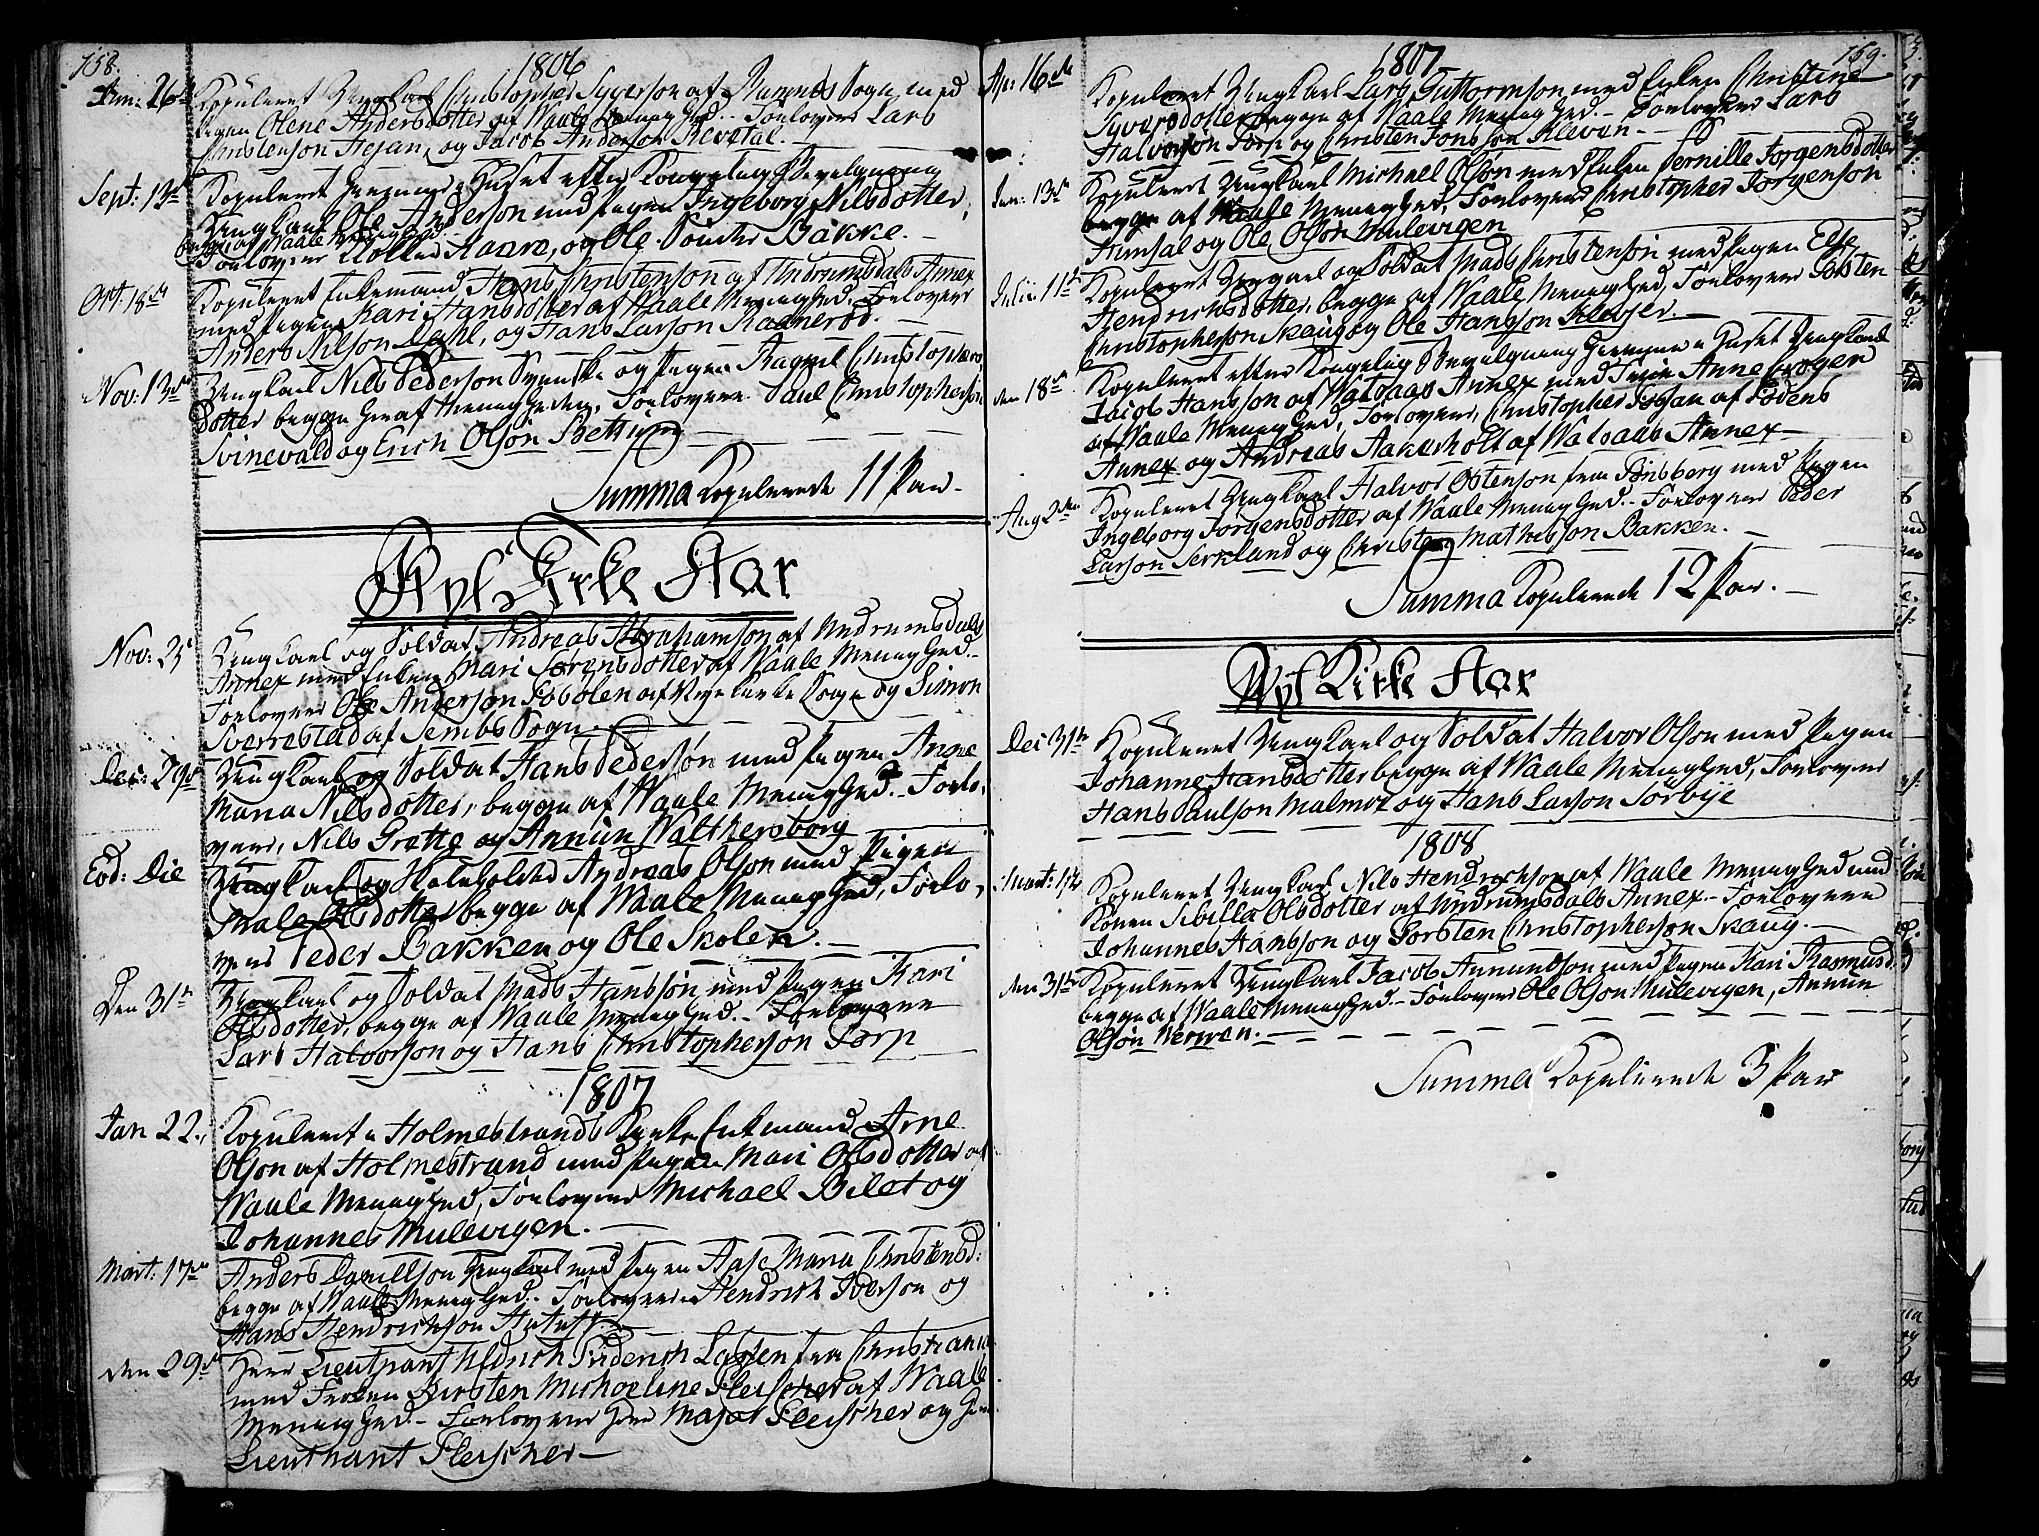 158.
1806
Jun: 26de Kopuleret Ungkarl Christopher Syverson af Ramnes Sogn med
Pigen Olene Andersdotter af Waale Menighed.- Forlovere Lars
Christenson Hejan, og Jacob Anderson Revetal.-
Sept: 13de Kopuleret hiemme i Huset efter Kongelig Bevilgning
Ungkarl Ole Anderson med Pigen Ingeborg Nilsdotter,
begge af Waale Menighed.
Forlovere Aare, og Ole Bakke.-
Oct: 18de Kopuleret Enkemand Hans Christenson af Undrumsdals Annex
med Pigen Kari Hansdotter af Waale Menighed, Forlovere
Anders Nilson Dahl, og Hans Larson Raanerød.
Nov: 13de Ungkarl Nils Pederson Svenske og Pigen Ragnil Christophers
dotter begge her af Menigheden, Forlovere Paul Christopherson
Svinevald og Erich Olson Bettum
Summa Kopulerede 11 Par.
Nyt Kirke Aar
Nov: 25 Ungkarl og Soldat Andreas Abrahamson af Undrumsdals
Annex med Enken Mari Sørensdotter af Waale Menighed.-
Forlovere Ole Anderson Sobølen af Nykirke Sogn og Simon
Sverrestad af Sembs Sogn.
Dec: 29de Ungkarl og Soldat Hans Pedersøn med Pigen Anne
Maria Nilsdotter, begge af Waale Menighed.- Forlo,
vere, Nils Grette og Annun Walthersborg
Eod: Die Ungkarl og Skoleholder Andreas Olson med Pigen
Male Olsdotter begge af Waale Menighed, Forlo,
vere Peder Bakken og Ole Skolen.-
Den 31te Ungkarl og Soldat Mads Hansson med Pigen Kari
Olsdotter, begge af Waale Menighed.- Forlovere
Lars Halvorson og Hans Christopherson Torp
1807
Jan 22. Kopuleret i Holmestrands Kirke Enkemand Arne
Olson af Holmestrand med Pigen Mari Olsdotter af
Waale Menighed, Forlovere Michael Bilet og
Johannes Mulevigen.-
Mart: 17de Anders Danillson Ungkarl med Pigen Aase Maria Christensd:
begge af Waale Menighed.- Forlovere Hendrich Iverson og
Hans Hendrichson
den 29de Herr Lieutnant Friderich Lassen fra Christiania
med Frøken Kirsten Michaeline Fleischer af Waale
Menighed.- Forlovere Herr Major Fleischer og Herr
Lieuthnant Fleischer-
159.
1807
Ap: 16de Kopuleret Ungkarl Lars Guttormson med Enken Christine
Syversdotter begge af Waale Menighed.- Forlovere Lars
Halvorson Torp og Christen Jonsson Kleven.-
Jun: 13de Kopuleret Ungkarl Michael Olson med Enken Pernille Jørgensdotter
begge af Waale Menighed, Forlovere Christopher Jørgenson
Himsal og Ole Olson Mulevigen
Julii 11te Kopuleret Ungkarl og Soldat Mads Christenson med Pigen Else
Hendrichsdotter, begge af Waale Menighed, Forlovere Torsten
Christopherson Skaug og Ole Hansson Klevjer.-
den 18de Kopuleret efter Kongelig Bevilgning hiemme i Huset Ungkarl
Jacob Hansson af Walsaas Annex med Anne Krøger
af Waale Menighed, Forlovere, Christopher Fossan af Fodens
Annex og Andreas Aakerholt af Walsaas Annex
Aug 2den Kopuleret Ungkarl Halvor Ostenson fra Tønsberg med Pigen
Ingeborg Jørgensdotter af Waale Menighed.- Forlovere Peder
Larson Serkland og Christen Mathisson Bakken.-
Summa Kopulerede 12 Par.-
Nyt Kirke Aar
Dec 31te Kopuleret Ungkarl og Soldat Halvor Olson med Pigen
Johanne Hansdotter begge af Waale Menighed, Forlovere
Hans Paulson Malmoe og Hans Larson Sørbye
1808
Mart: 14 Kopuleret Ungkarl Nils Hendrichson af Waale Menighed med
Konen Sibilla Olsdotter af Undrumsdals Annex.- Forlovere
Johannes Hansson og Torsten Christopherson Skaug.-
den 31te Kopuleret Ungkarl Jacob Annundson med Pigen Kari Rasmusd:
begge af Waale Menighed.- Forlovere Ole Olson Mulevigen, Annun
Olson Werpen.-
Summa Kopulerede 3 Par